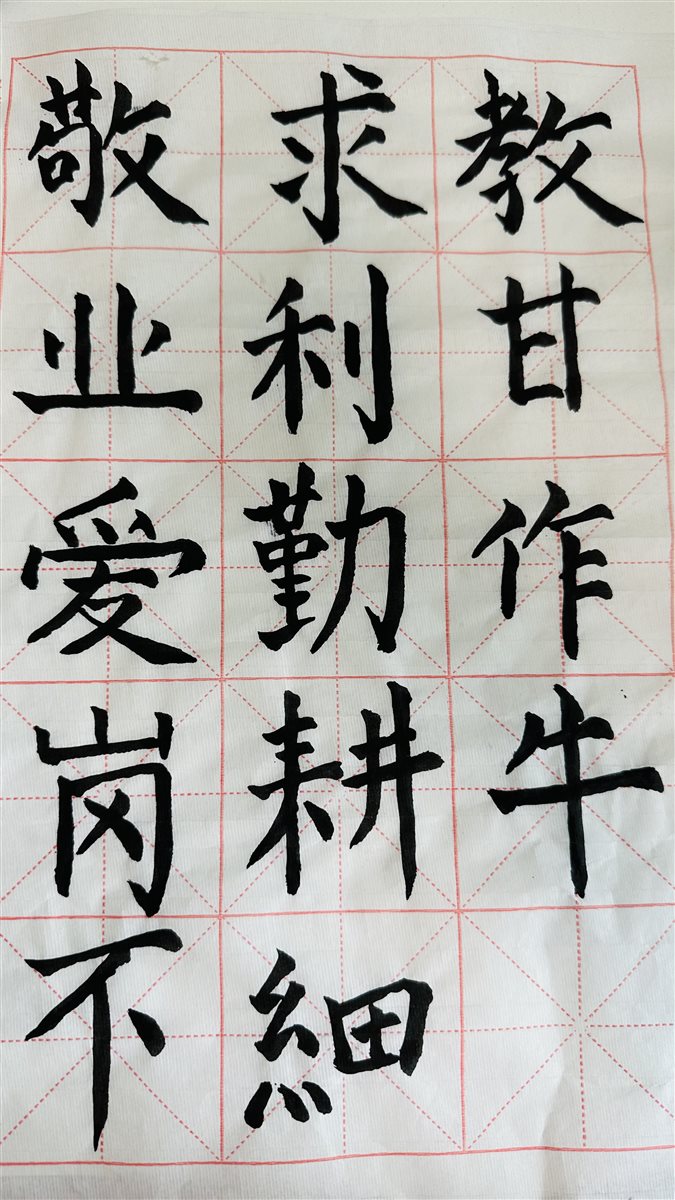 敬业爱岗不
求利勤耕細
教甘作牛